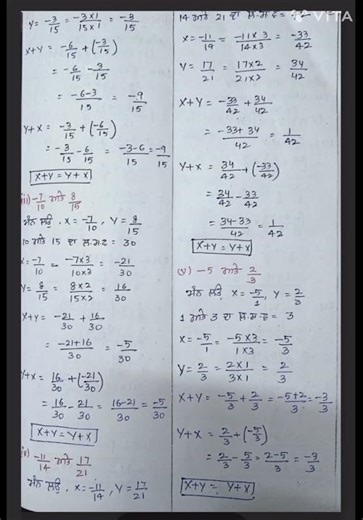 y = -3/15 = -3×1/15×1 = -3/15
x+y = -6/15 + (-3/15)
= -6/15 - 3/15
= -6-3/15 = -9/15
y+x = -3/15 + (-6/15)
= -3/15 - 6/15 = -3-6/15 = -9/15
x+y = y+x
(iii) -7/10 ਅਤੇ 8/15
ਮੰਨ ਲਓ, x = -7/10, y = 8/15
10 ਅਤੇ 15 ਦਾ ਲ.ਸ.ਵ = 30
x = -7/10 = -7×3/10×3 = -21/30
y = 8/15 = 8×2/15×2 = 16/30
x+y = -21/30 + 16/30
= -21+16/30 = -5/30
y+x = 16/30 + (-21/30)
= 16/30 - 21/30 = 16-21/30 = -5/30
x+y = y+x
-11/14 ਅਤੇ 17/21
ਮੰਨ ਲਓ, x = -11/14, y = 17/21
14 ਅਤੇ 21 ਦਾ ਲ.ਸ.ਵ =
VITA
x = -11/19 = -11×3/14×3 = -33/42
y = 17/21 = 17×2/21×2 = 34/42
x+y = -33/42 + 34/42
= -33+34/42 = 1/42
y+x = 34/42 + (-33/42)
= 34/42 - 33/42
= 34-33/42 = 1/42
x+y = y+x
(v) -5 ਅਤੇ 2/3
ਮੰਨ ਲਓ, x = -5/1, y = 2/3
1 ਅਤੇ 3 ਦਾ ਲ.ਸ.ਵ = 3
x = -5/1 = -5×3/1×3 = -5/3
y = 2/3 = 2×1/3×1 = 2/3
x+y = -5/3 + 2/3 = -5+2/3 = -3/3
y+x = 2/3 + (-5/3)
= 2/3 - 5/3 = 2-5/3 = -3/3
x+y = y+x